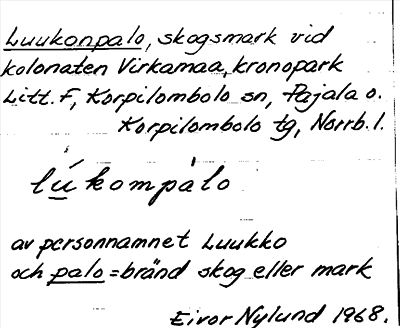 Luukonpalo, skogsmark vid
kolonaten Virkamaa, kronopark
Litt. F, Korpilombolo sn, Pajala o.
Korpilombolo tg, Norrb. l.
lúkompàlo
av personnamnet Luukko
och palo = bränd skog eller mark
Eivor Nylund 1968.